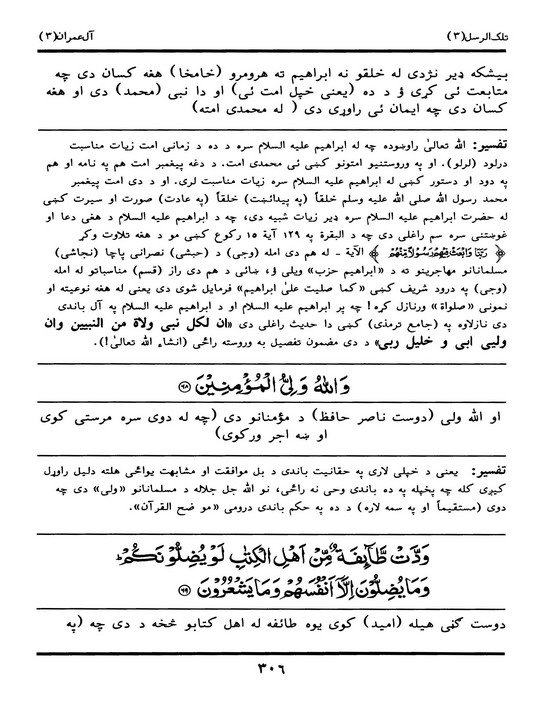 تلک الرسل(۳) آل عمران(۳)
بیشکه ډیر نژدی له خلقو نه ابراهیم ته هرومرو (خامخا) هغه کسان دی چه
متابعت ئی کړی ؤ د ده (یعنی خپل امت ئی) او دا نبی (محمد) دی او هغه
کسان دی چه ایمان ئی راوړی دی ( له محمدی امته)
تفسیر: الله تعالیٰ راوښوده چه له ابراهیم علیه السلام سره د ده د زمانی امت زیات مناسبت
درلود (لرلو). او په وروستنیو امتونو کښی ئی محمدی امت. د دغه پیغمبر امت هم په نامه او هم
په دود او دستور کښی له ابراهیم علیه السلام سره زیات مناسبت لری. او د دی امت پیغمبر
محمد رسول الله صلی الله علیه وسلم خلقاً (په پیدائښت) خلقاً (په عادت) صورت او سیرت کښی
له حضرت ابراهیم علیه السلام سره ډیر زیات شبیه دی، چه د ابراهیم علیه السلام د هغی دعا او
غوښتنی سره سم راغلی دی چه د البقرة په ۱۲۹ آیة ۱۵ رکوع کښی مو د هغه تلاوت وکړ
﴿ رَبَّنَا وَابْعَثْ فِيهِمْ رَسُولًا مِّنْهُمْ ﴾ الآیة - له هم دی امله (وجی) د (حبشی) نصرانی پاچا (نجاشی)
مسلمانانو مهاجرینو ته د «ابراهیم حزب» ویلی ؤ، ښائی د هم دی راز (قسم) مناسباتو له امله
(وجی) په درود شریف کښی «کما صلیت علیٰ ابراهیم» فرمایل شوی دی یعنی له هغه نوعیته او
نمونی «صلواة» ورنازل کړه! چه پر ابراهیم علیه السلام او د ابراهیم علیه السلام په آل باندی
دی نازلاوه په (جامع ترمذی) کښی دا حدیث راغلی دی «ان لکل نبی ولاة من النبیین وان
ولیی ابی و خلیل ربی» د دی مضمون تفصیل به وروسته راځی (انشاء الله تعالیٰ!).
وَاللهُ وَلِيُّ الْمُؤْمِنِينَ ﴿۶۸﴾
او الله ولی (دوست ناصر حافظ) د مؤمنانو دی (چه له دوی سره مرستی کوی
او ښه اجر ورکوی)
تفسیر: یعنی د خپلی لاری په حقانیت باندی د بل موافقت او مشابهت یواځی هلته دلیل راوړل
کیږی کله چه پخپله په ده باندی وحی نه راځی، نو الله جل جلاله د مسلمانانو «ولی» دی چه
دوی (مستقیماً او په سمه لاره) د ده په حکم باندی درومی «مو ضح القرآن».
وَدَّتْ طَّآئِفَةٌ مِّنْ اَهْلِ الْكِتٰبِ لَوْ يُضِلُّوْنَكُمْ ؕ
وَمَا يُضِلُّوْنَ اِلَّاۤ اَنْفُسَهُمْ وَمَا يَشْعُرُوْنَ ﴿۶۹﴾
دوست ګڼی هیله (امید) کوی یوه طائفه له اهل کتابو څخه د دی چه (په
۳۰۶